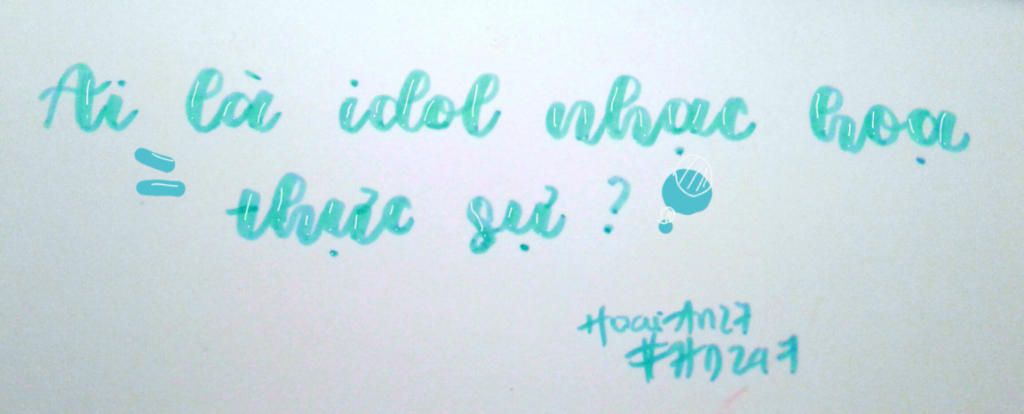 Ai là idol nhạc họa
thực sự ?
HoaiAn27
#AD247